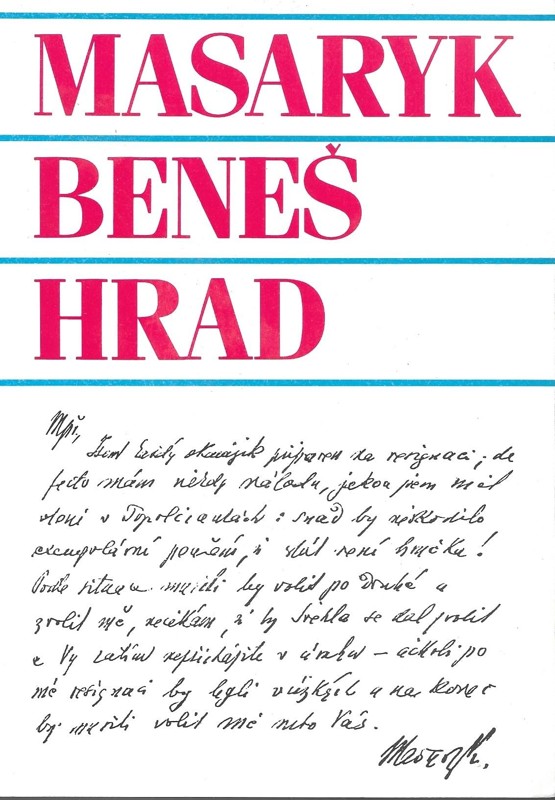 MASARYK
BENEŠ
HRAD
Mpř.,
Jsem každý okamžik připraven na resignaci; de
facto mám někdy náladu, jakou jsem měl
vloni v Topolčiankách: snad by neškodilo
exemplární poučení, že stát není hračka!
Podle situace musili by volit po druhé a
zvolit mě, nečekám, že by Švehla se dal zvolit
a Vy zatím nepřicházíte v úvahu – ačkoli po
mé resignaci by byli v úzkých a na konec
by musili volit mě nebo Vás.
Masaryk.